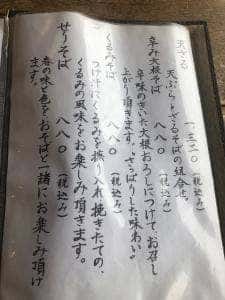 天ざる　一三二〇（税込み）
天ぷらとざるそばの組合せ。
辛み大根そば　八八〇（税込み）
辛味のきいた大根おろしにつけて、お召し
上がり頂きます。さっぱりした味わい。
くるみそば　八八〇（税込み）
つけ汁にくるみを擦り入れ挽きたての、
くるみの風味をお楽しみ頂きます。
せりそば　八八〇（税込み）
春の味と色をおそばと一緒にお楽しみ頂け
ます。